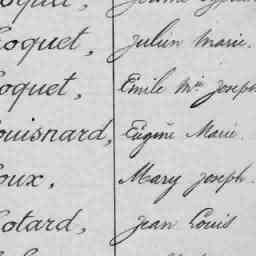 oquet, Julien Marie.
oquet, Emile Mie Joseph
ouisnard, Eugène Marie
oux, Mary Joseph
otard, Jean Louis